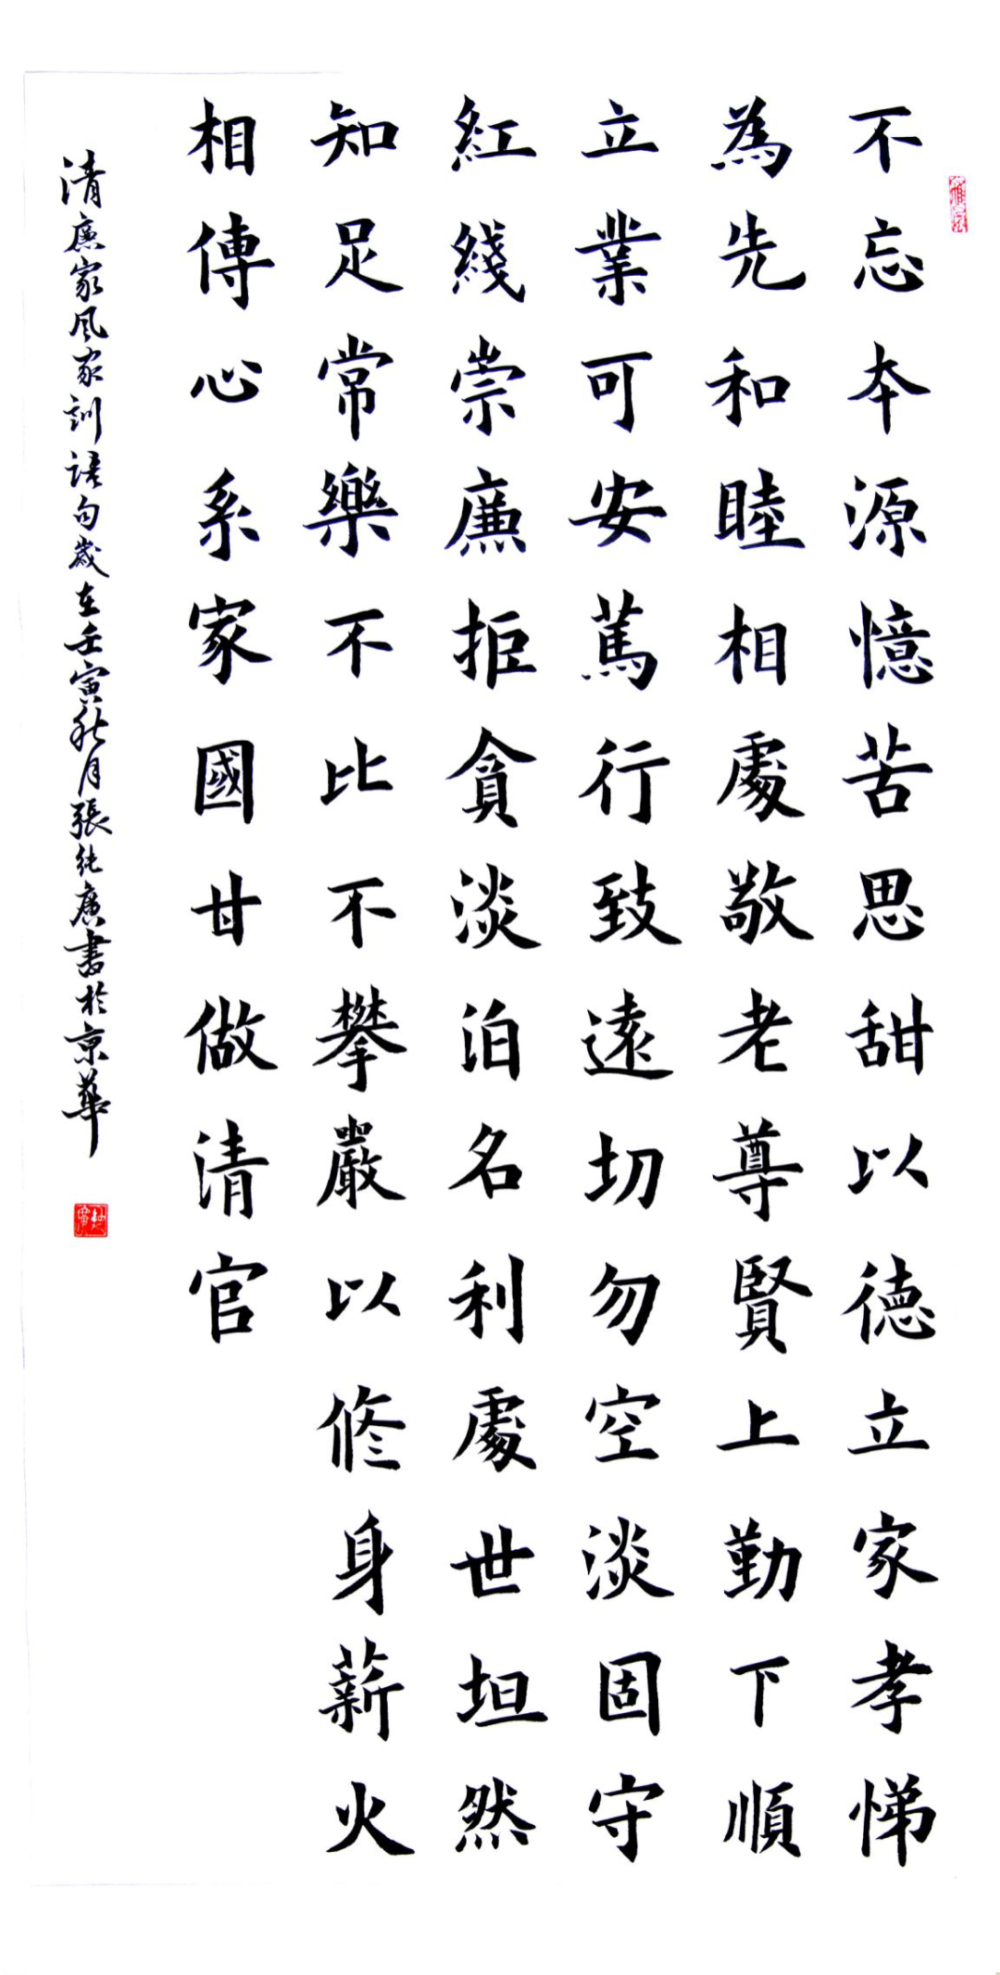 不忘本源憶苦思甜以德立家孝悌
為先和睦相處敬老尊賢上勤下順
立業可安篤行致遠切勿空淡固守
紅綫崇廉拒貪淡泊名利處世坦然
知足常樂不比不攀嚴以修身薪火
相傳心系家國甘做清官
清廉家风家訓語句歲在壬寅秋月張純廣書於京華